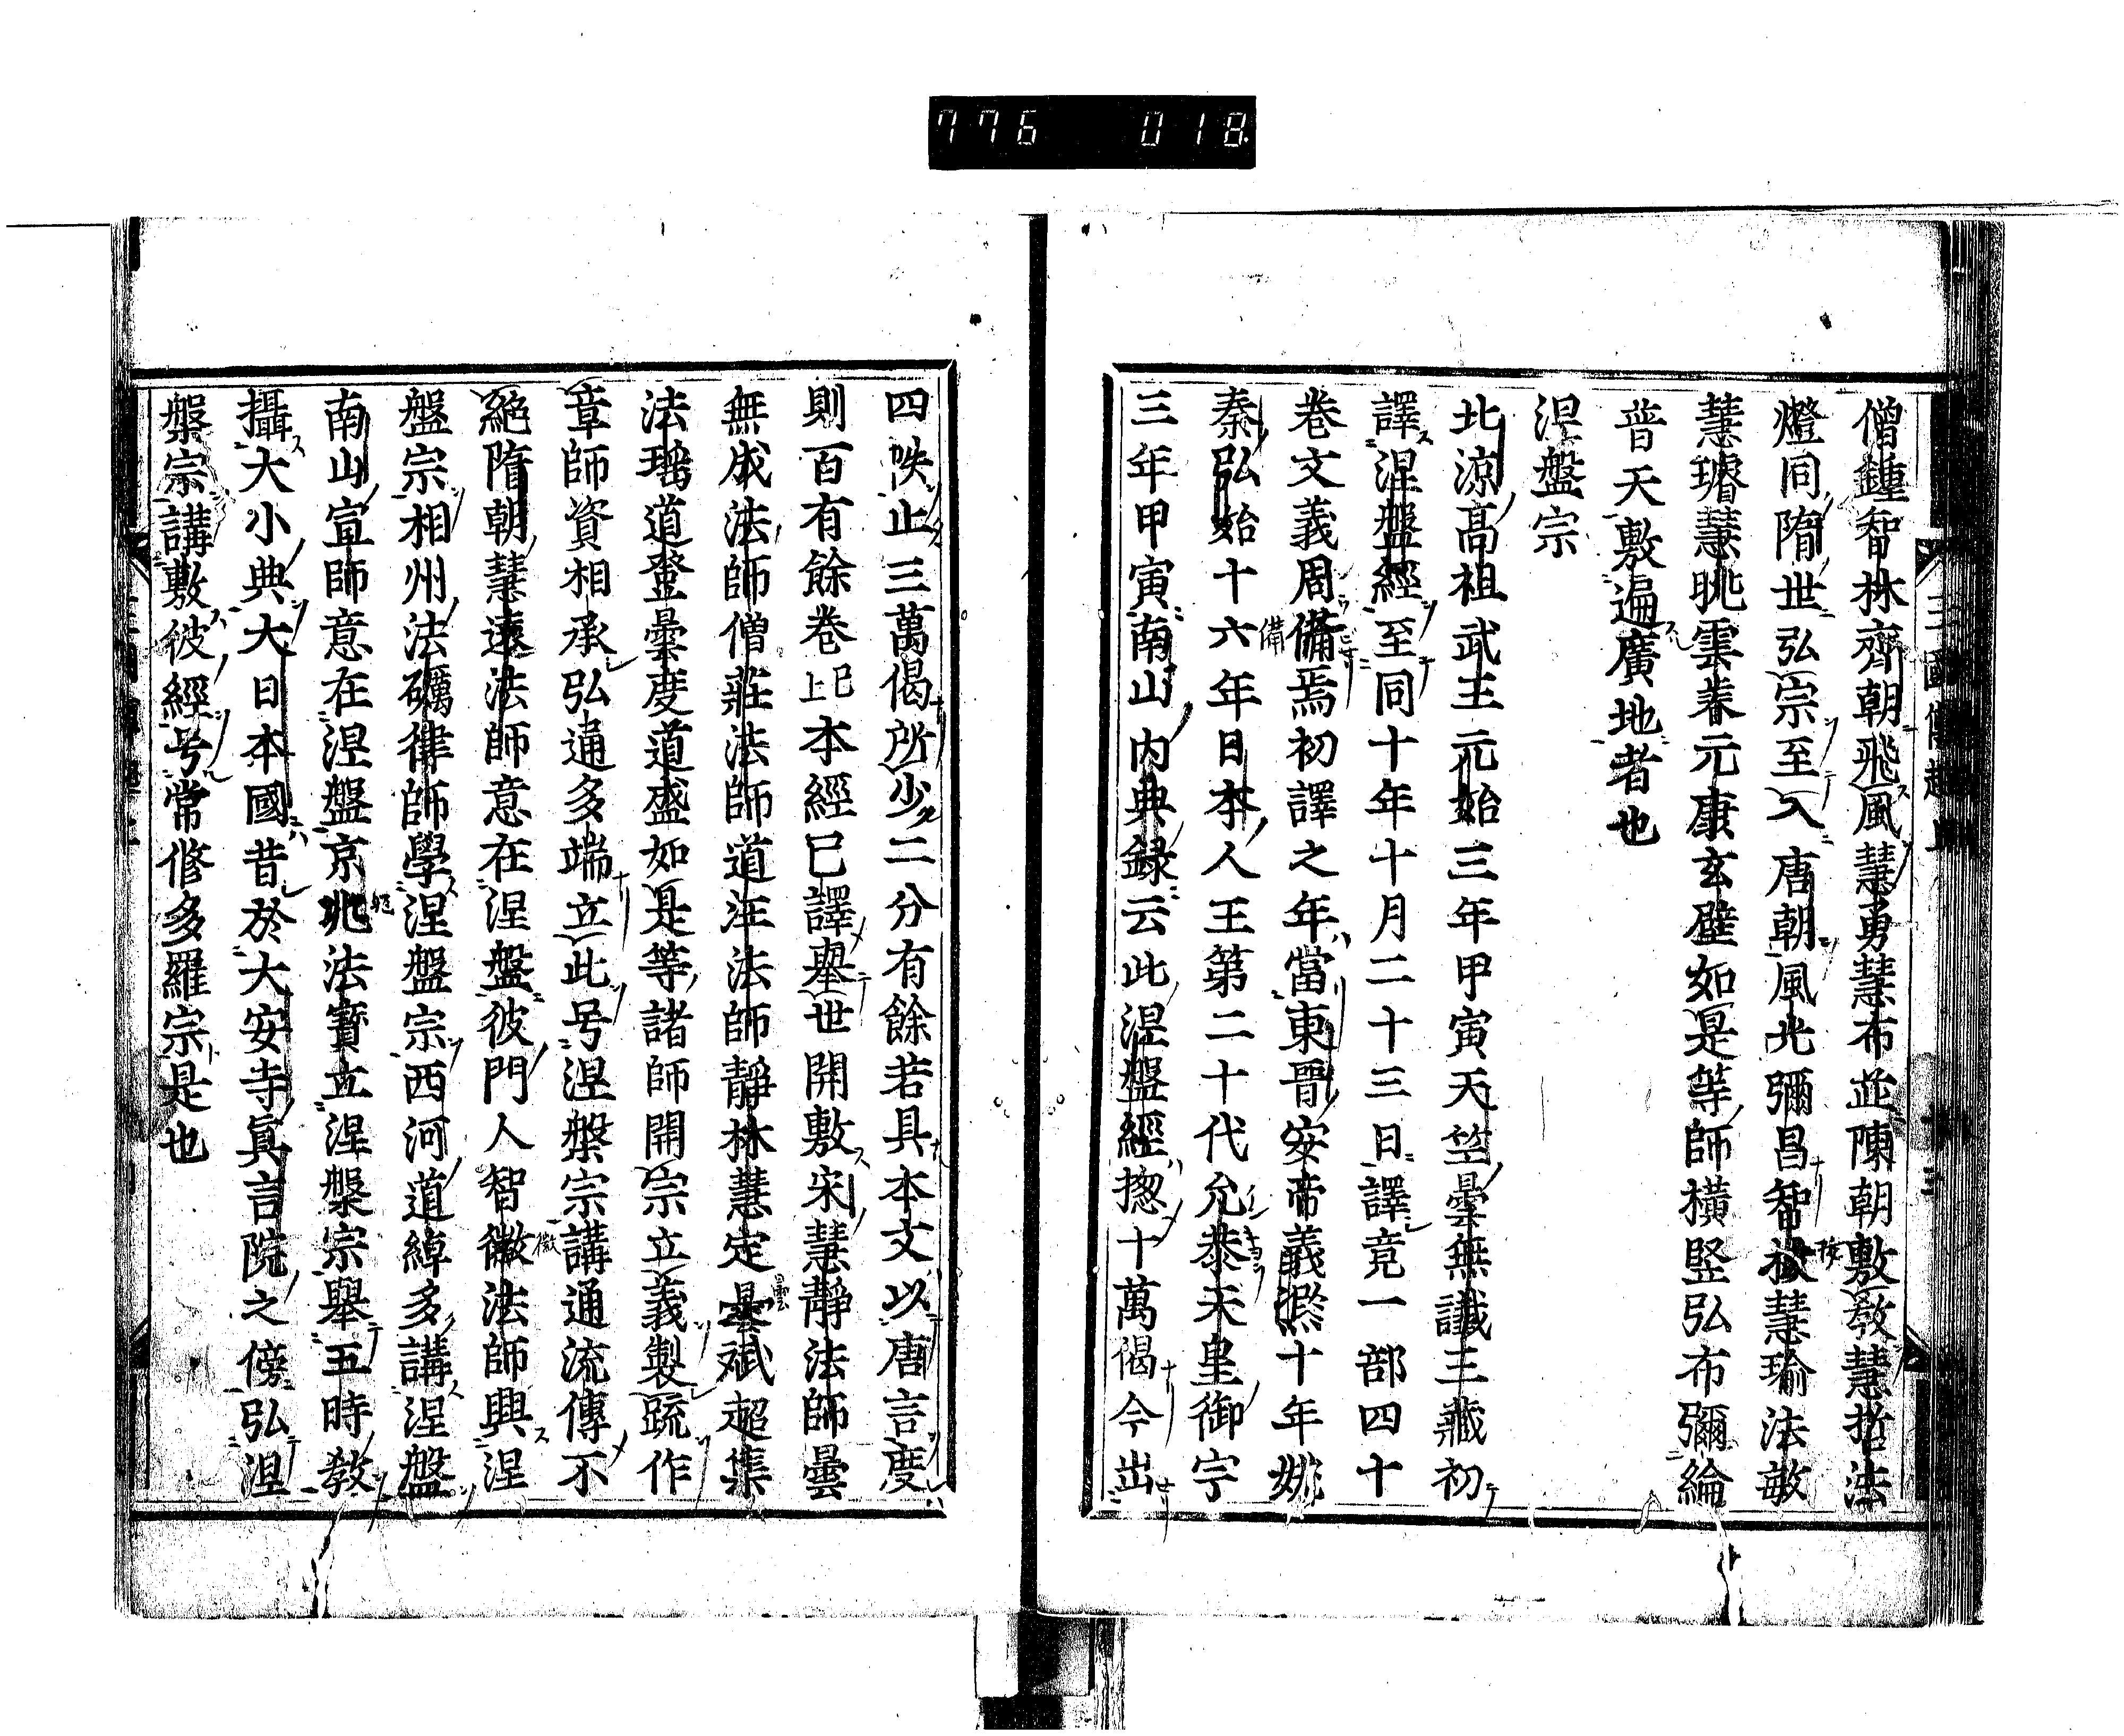 776 018
僧鍾智林齊朝飛風慧勇慧布並陳朝敷教慧哲法
燈同隋世弘宗至入唐朝風光彌昌智拔慧瑜法敏
慧璿慧眺雲㬱元康玄壁如是等師橫竪弘布彌綸
普天敷遍廣地者也
涅盤宗
北涼高祖武王元始三年甲寅天竺曇無讖三藏初
譯涅盤經至同十年十月二十三日譯竟一部四十
卷文義周備焉初譯之年當東晉安帝義熈十年姚
秦弘始十六年日本人王第二十代允恭天皇御宇
三年甲寅南山內典録云此涅盤經揔十萬偈今出
四帙止三萬偈所少二分有餘若具本文以唐言度
則百有餘卷已上本經已譯舉世開敷宋慧靜法師曇
無成法師僧莊法師道汪法師靜林慧定曇斌超集
法瑤道登曇度道盛如是等諸師開宗立義製䟽作
章師資相承弘通多端立此号涅槃宗講通流傳不
絕隋朝慧遠法師意在涅盤彼門人智徽法師興涅
盤宗相州法礪律師學涅盤宗西河道綽多講涅盤
南山宣師意在涅盤京兆法寶立涅槃宗舉五時教
攝大小典大日本國昔於大安寺眞言院之傍弘涅
槃宗講敷彼經号常修多羅宗是也